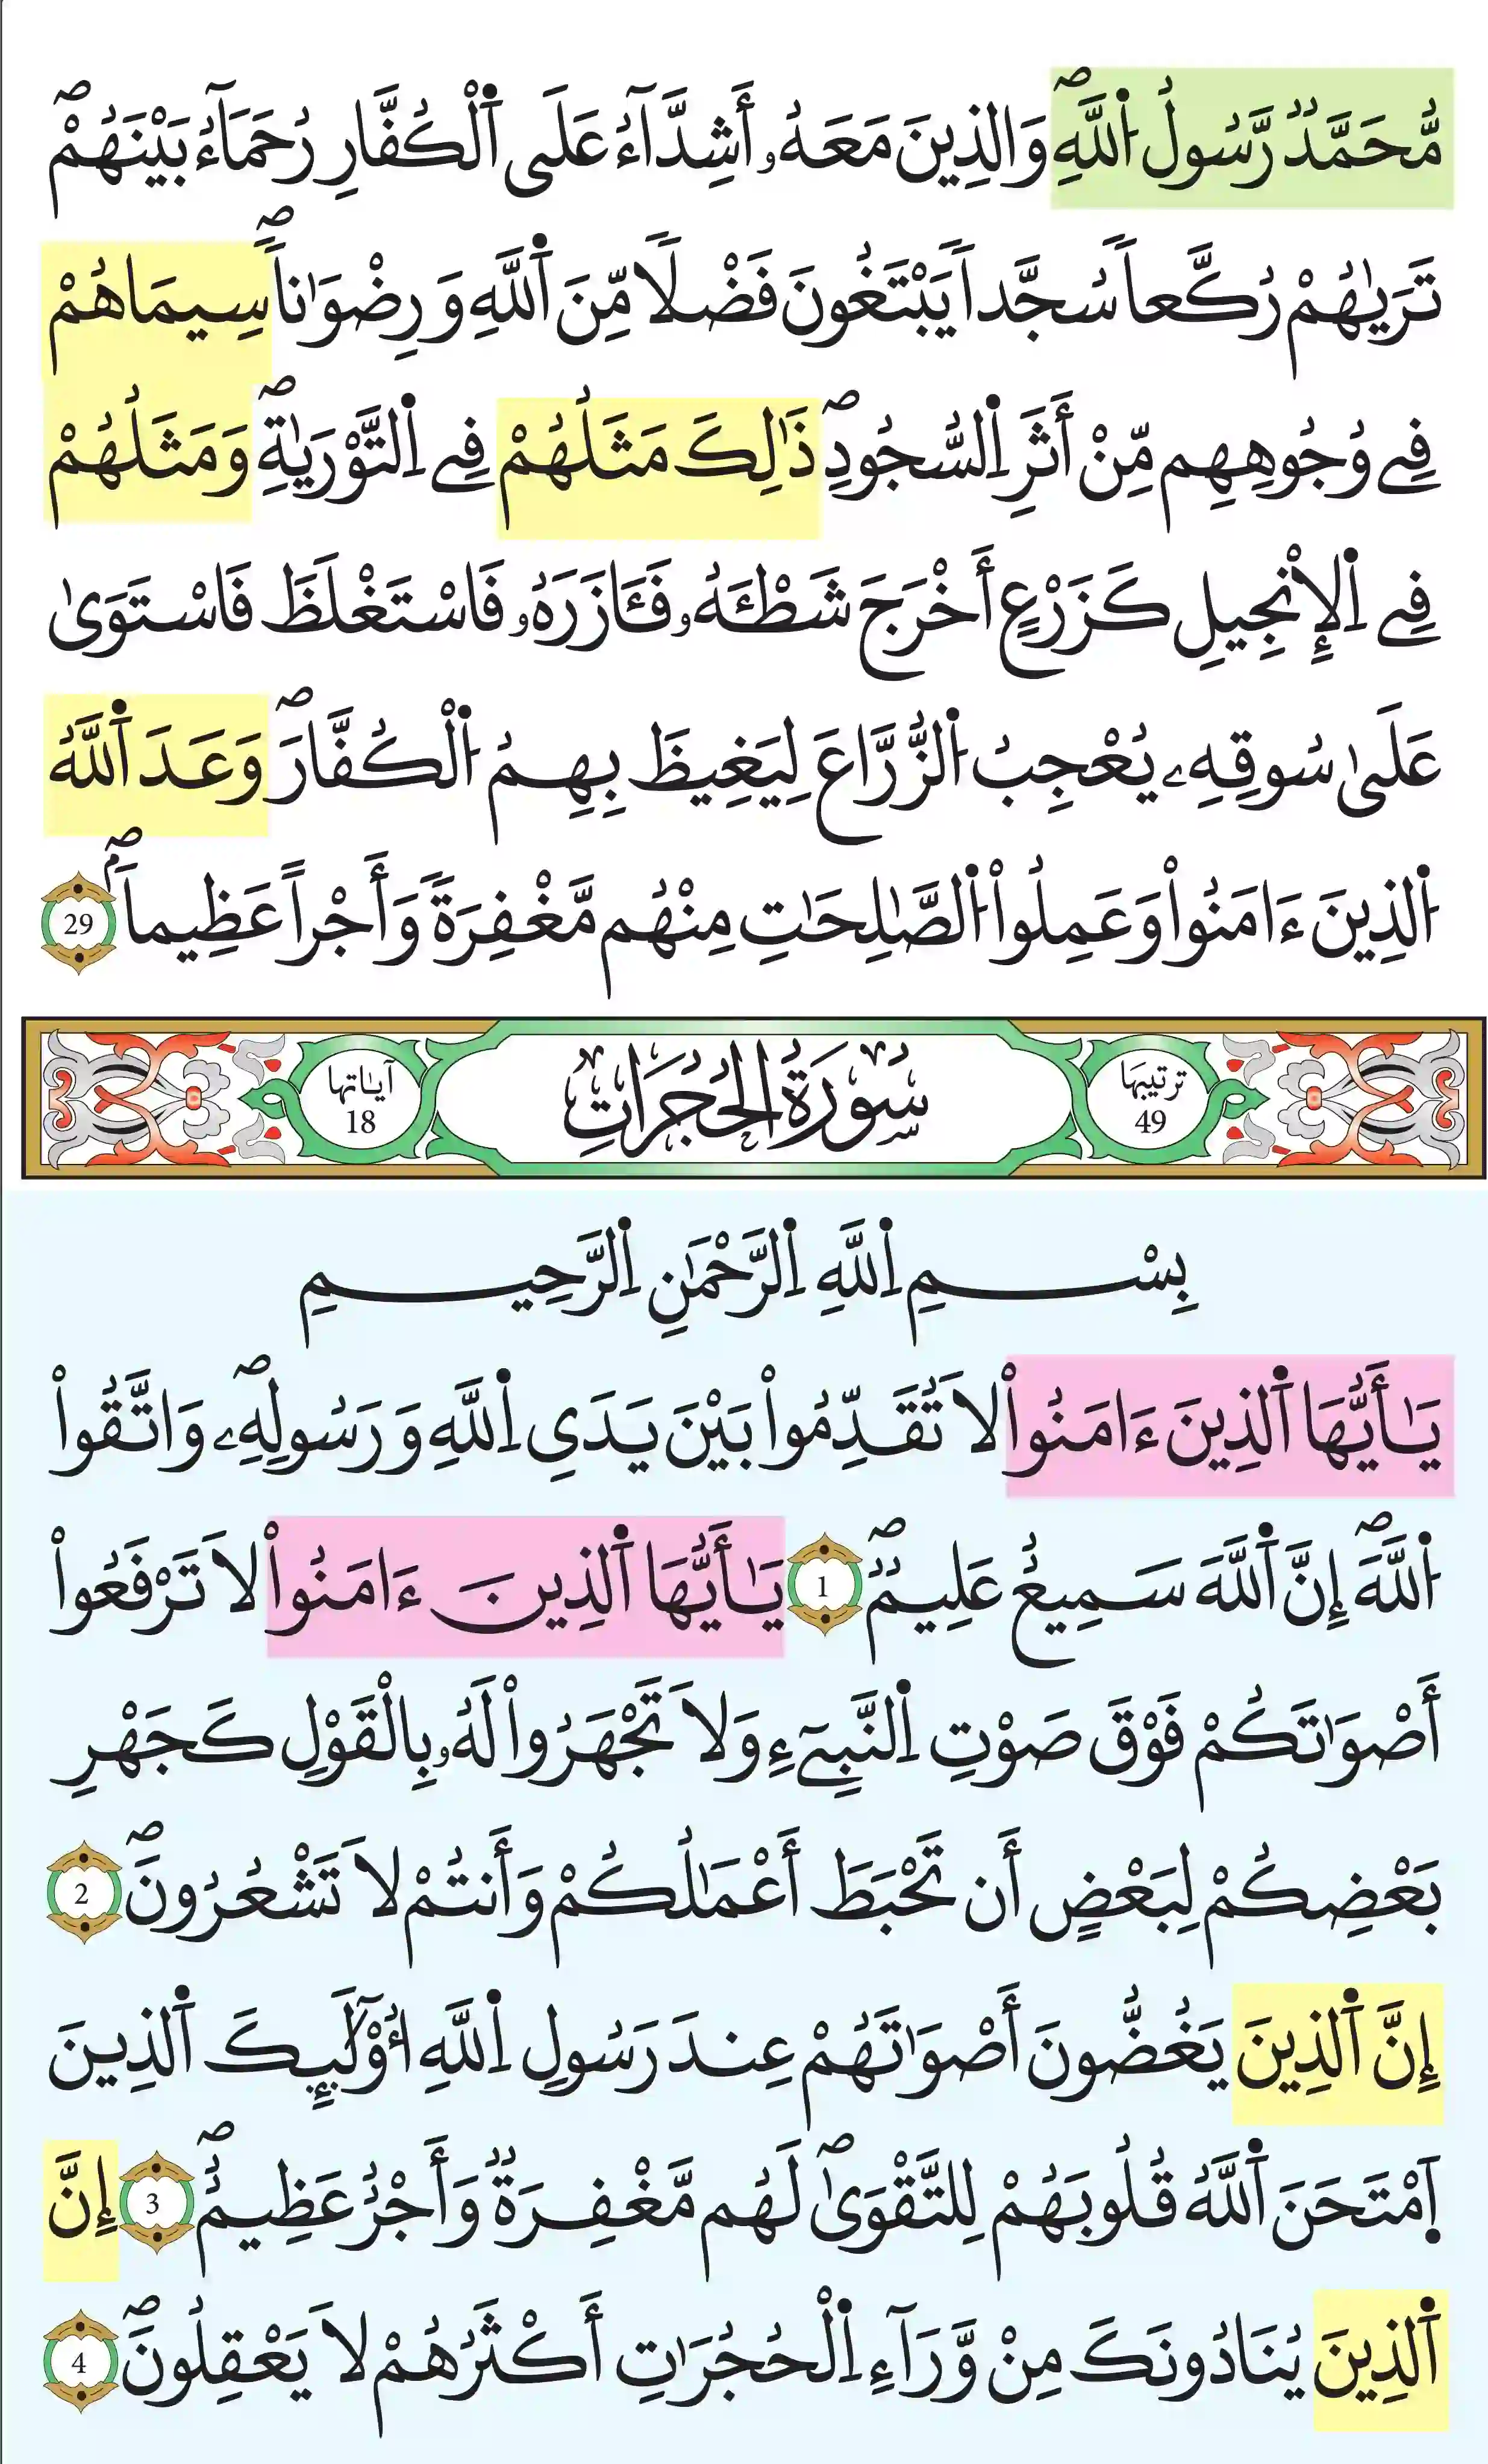 مُّحَمَّدٞ رَّسُولُ اُ۬للَّهِۖ وَالذِينَ مَعَهُۥ أَشِدَّآءُ عَلَي اَ۬لْكُفَّارِ رُحَمَآءُ بَيْنَهُمْۖ
تَر۪يٰهُمْ رُكَّعاٗ سُجَّداٗ يَبْتَغُونَ فَضْلٗا مِّنَ اَ۬للَّهِ وَرِضْوَٰناٗۖ سِيمَاهُمْ
فِے وُجُوهِهِم مِّنْ أَثَرِ اِ۬لسُّجُودِۖ ذَٰلِكَ مَثَلُهُمْ فِے اِ۬لتَّوْر۪يٰةِۖ وَمَثَلُهُمْ
فِے اِ۬لْإِنْجِيلِ كَزَرْعٍ أَخْرَجَ شَطْـَٔهُۥ فَـَٔازَرَهُۥ فَاسْتَغْلَظَ فَاسْتَوَىٰ
عَلَىٰ سُوقِهِۦ يُعْجِبُ اُ۬لزُّرَّاعَ لِيَغِيظَ بِهِمُ اُ۬لْكُفَّارَۖ وَعَدَ اَ۬للَّهُ
اُ۬لذِينَ ءَامَنُواْ وَعَمِلُواْ اُ۬لصَّٰلِحَٰتِ مِنْهُم مَّغْفِرَةٗ وَأَجْراً عَظِيماٗۖ 29
ترتيبها 49 سُورَةُ الحُجُرَاتِ آياتها 18
بِسْمِ اِ۬للَّهِ اِ۬لرَّحْمَٰنِ اِ۬لرَّحِيمِ
يَٰأَيُّهَا اَ۬لذِينَ ءَامَنُواْ لَا تُقَدِّمُواْ بَيْنَ يَدَيِ اِ۬للَّهِ وَرَسُولِهِۦۖ وَاتَّقُواْ
اُ۬للَّهَۖ إِنَّ اَ۬للَّهَ سَمِيعٌ عَلِيمٞۖ 1 يَٰأَيُّهَا اَ۬لذِينَ ءَامَنُواْ لَا تَرْفَعُواْ
أَصْوَٰتَكُمْ فَوْقَ صَوْتِ اِ۬لنَّبِےٓءِ وَلَا تَجْهَرُواْ لَهُۥ بِالْقَوْلِ كَجَهْرِ
بَعْضِكُمْ لِبَعْضٍ أَن تَحْبَطَ أَعْمَٰلُكُمْ وَأَنتُمْ لَا تَشْعُرُونَۖ 2
إِنَّ اَ۬لذِينَ يَغُضُّونَ أَصْوَٰتَهُمْ عِندَ رَسُولِ اِ۬للَّهِ أُوْلَٰٓئِكَ اَ۬لذِينَ
اَ۪مْتَحَنَ اَ۬للَّهُ قُلُوبَهُمْ لِلتَّقْوَىٰۖ لَهُم مَّغْفِرَةٞ وَأَجْرٌ عَظِيمٌۖ 3 إِنَّ
اَ۬لذِينَ يُنَادُونَكَ مِنْ وَّرَآءِ اِ۬لْحُجُرَٰتِ أَكْثَرُهُمْ لَا يَعْقِلُونَۖ 4